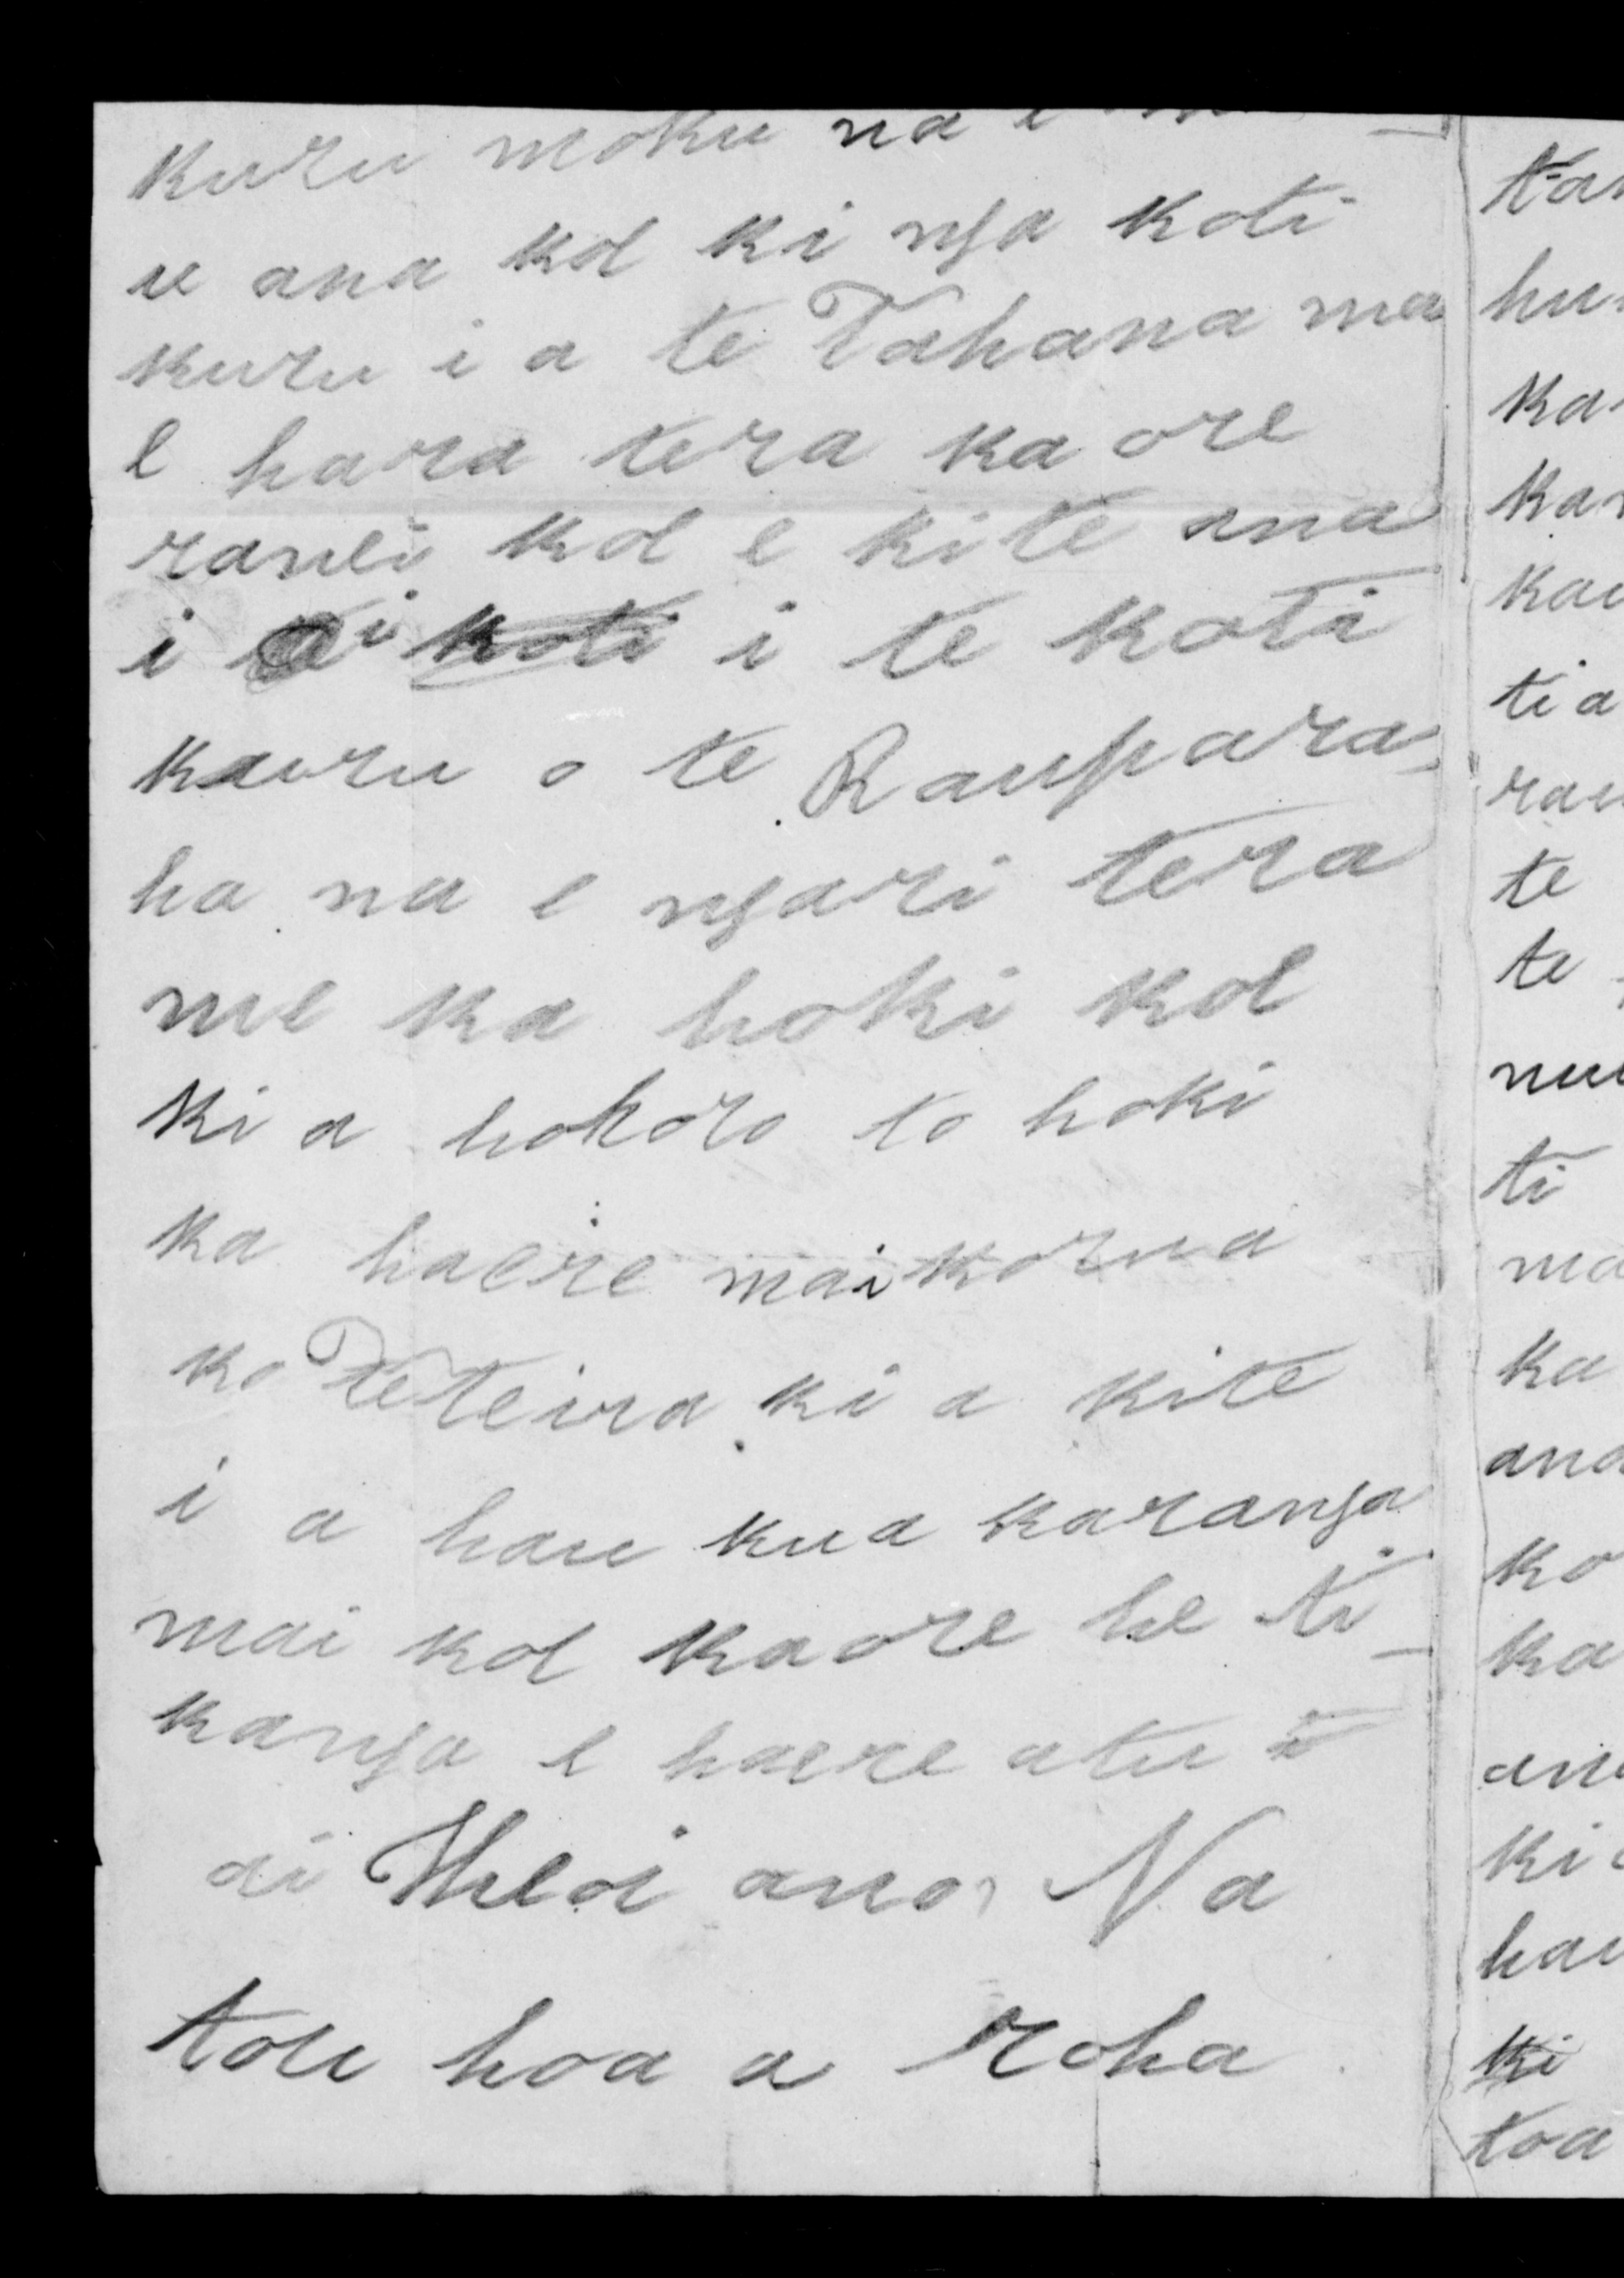 kuru moku na e
u ana koe ki nga koti
kuru i a te Tahana ma
e hara tera ka ore
ranei koe e kite ana
i koti i te koti
kauru o te Raupara=
ha na e ngari tera
me ka hoki koe
ki a hohoro to hoki
ka haere mai korua
ko Te teira ki a kite
i a hau kua karanga
mai koe kaore he ti_
kanga e haere atu
ai Heoi ano, Na
tou hoa a roha
hu
ka
ti a
te
te
ti
ma
ka
ana
ko
ka
ki
hau
ki
toa